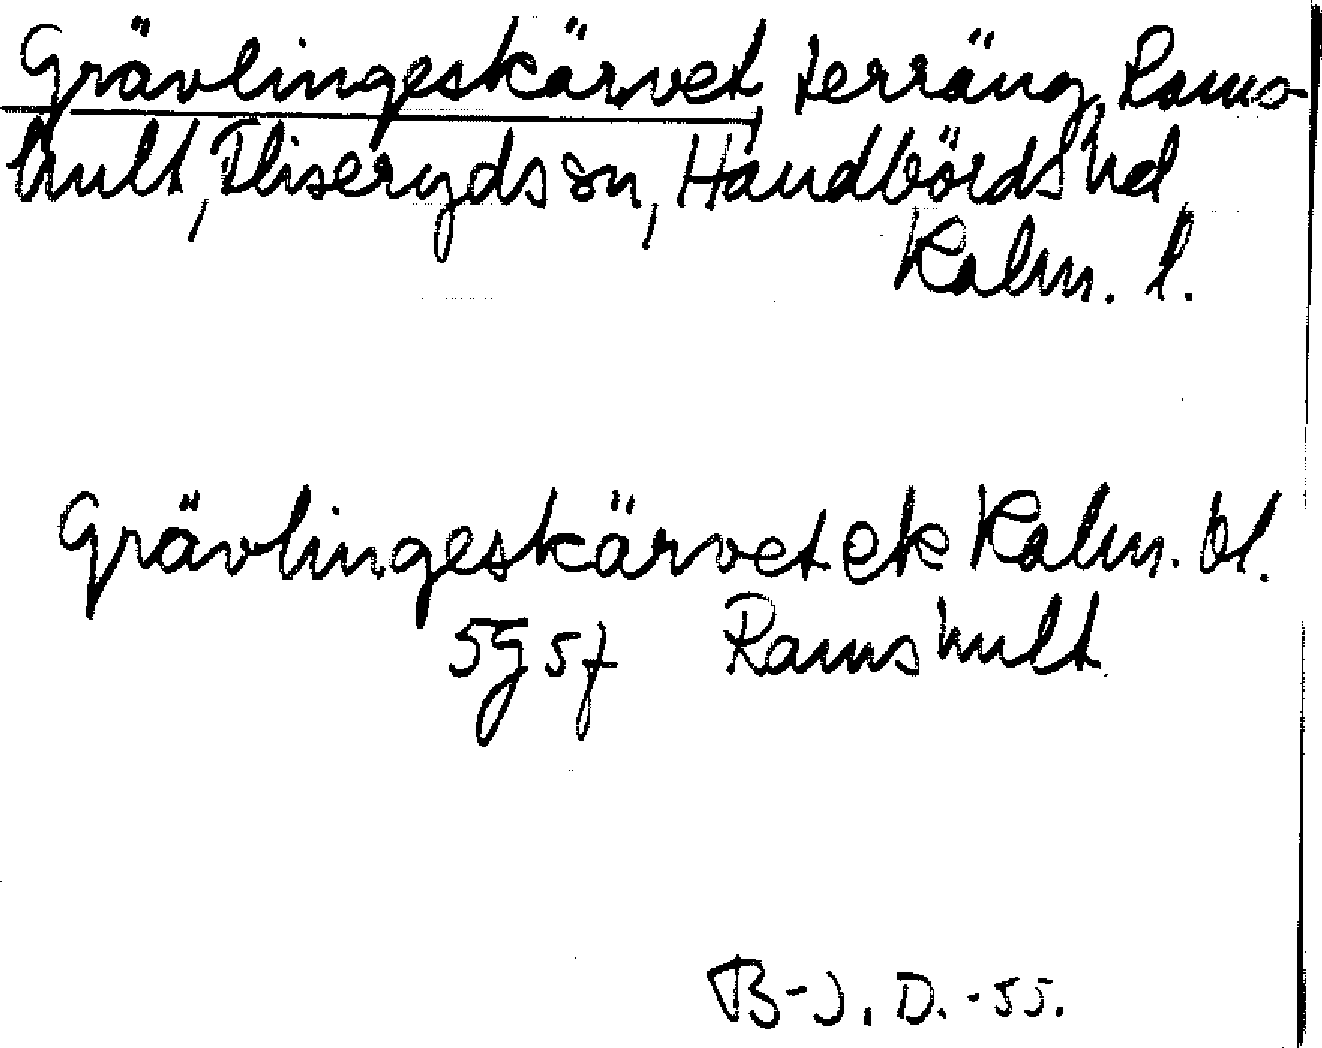 Grävlingeskärvet, terräng, Rams-
hult, Fliseryds sn, Handbörds hd,
Kalm. l.
Grävlingeskärvet ek Kalm. bl.
5g5f Ramshult.
B-J. D. -55.